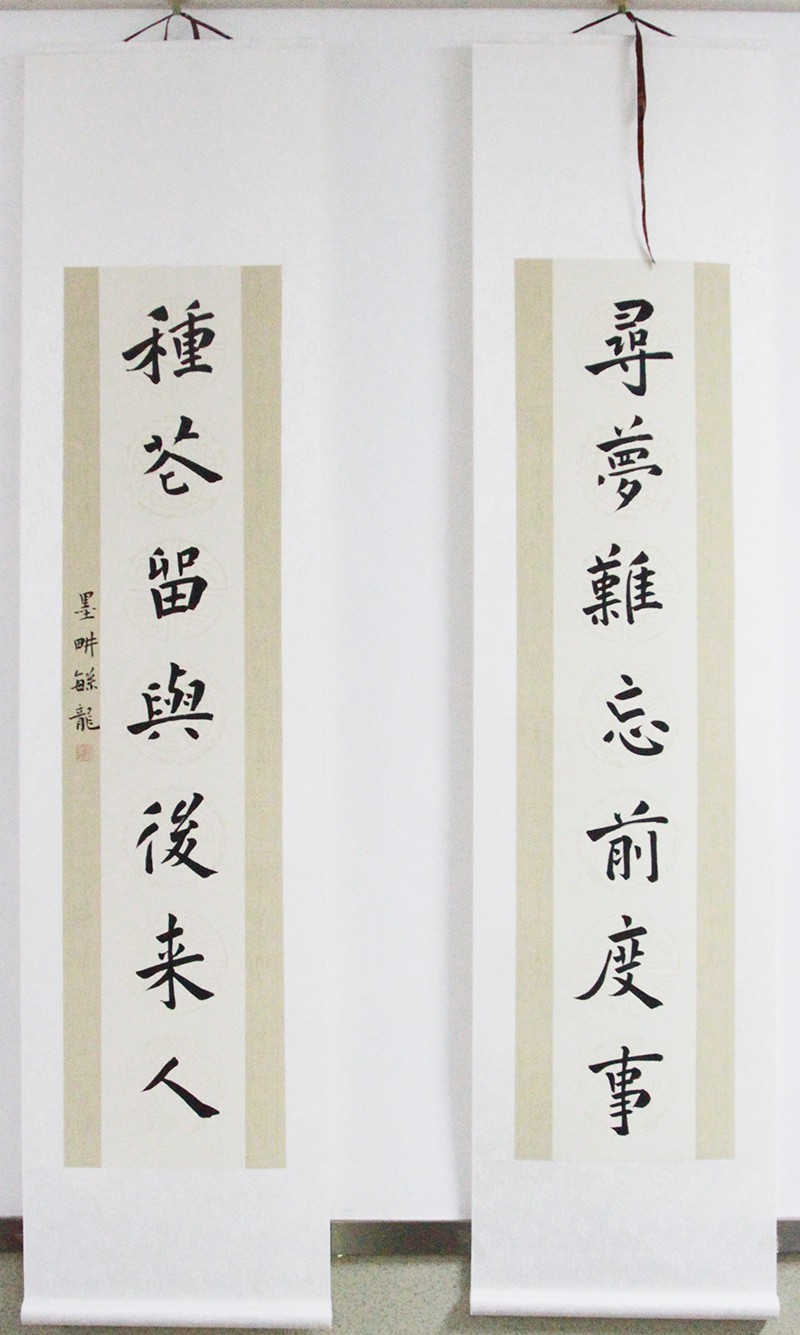 尋夢難忘前度事
種花留與後来人
墨畊毓龍